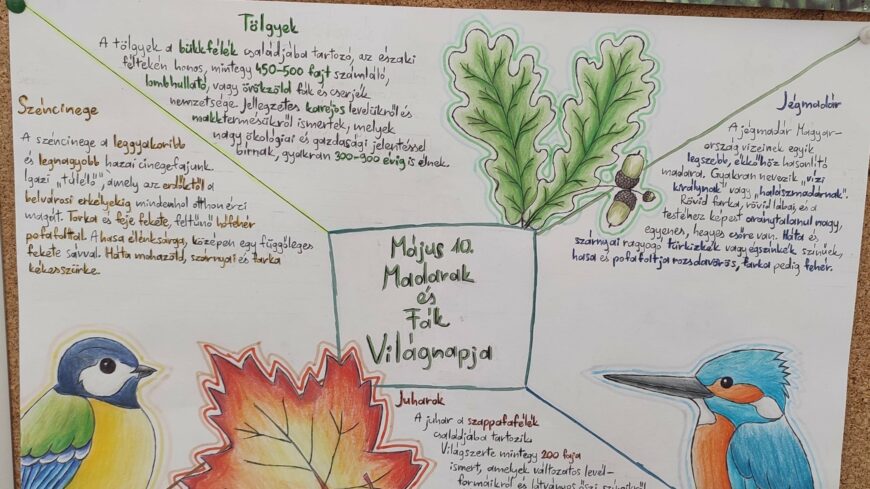 Tölgyek
A tölgyek a bükkfélék családjába tartozó, az északi
féltekén honos, mintegy 450-500 fajt számláló,
lombhullató, vagy örökzöld fák és cserjék
nemzetsége. Jellegzetes karéjos levelükről és
makktermésükről ismertek, melyek
nagy ökológiai és gazdasági jelentéssel
bírnak, gyakran 300-900 évig is élnek.
Széncinege
A széncinege a leggyakoribb
és legnagyobb hazai cinegefajunk.
Igazi „túlélő", amely az erdőktől a
belvárosi erkélyekig mindenhol otthon érzi
magát. Tarka és feje fekete, feltűnő hófehér
pofafolttal. A hasa élénksárga, középen egy függőleges
fekete sávval. Háta mohazöld, szárnyai és farka
kékesszürke.
Jégmadár
A jégmadár Magyar-
ország vizeinek egyik
legszebb, ékkőhöz hasonlító
madara. Gyakran nevezik „vízi
királynak" vagy „halászmadárnak".
Rövid farka, rövid lábai, és a
testéhez képest aránytalanul nagy,
egyenes, hegyes csőre van. Háta és
szárnyai ragyogó türkizkék vagy égszínkék színűek,
hasa és pofafoltja rozsdavörös, torka pedig fehér.
Május 10.
Madarak
és
Fák
Világnapja
Juharok
A juhar a szappanfafélék
családjába tartozik.
Világszerte mintegy 200 faja
ismert, amelyek változatos levél-
formáikról és látványos őszi színeikről